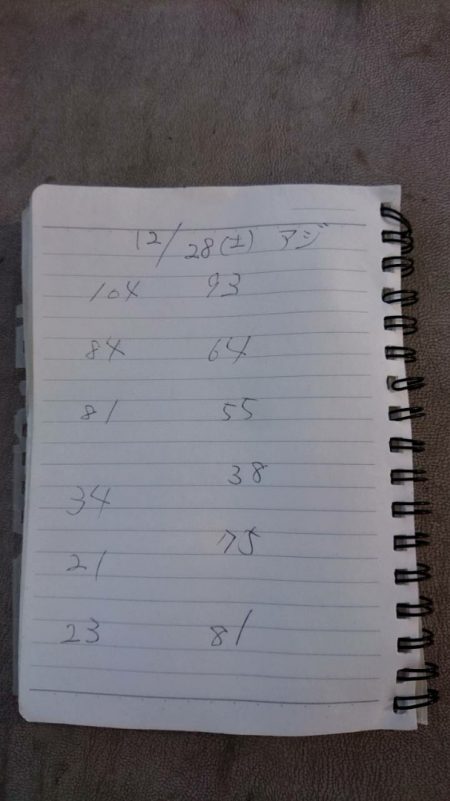 12/28(土) アジ
104 93
84 64
81 55
38
34
75
21
23 81